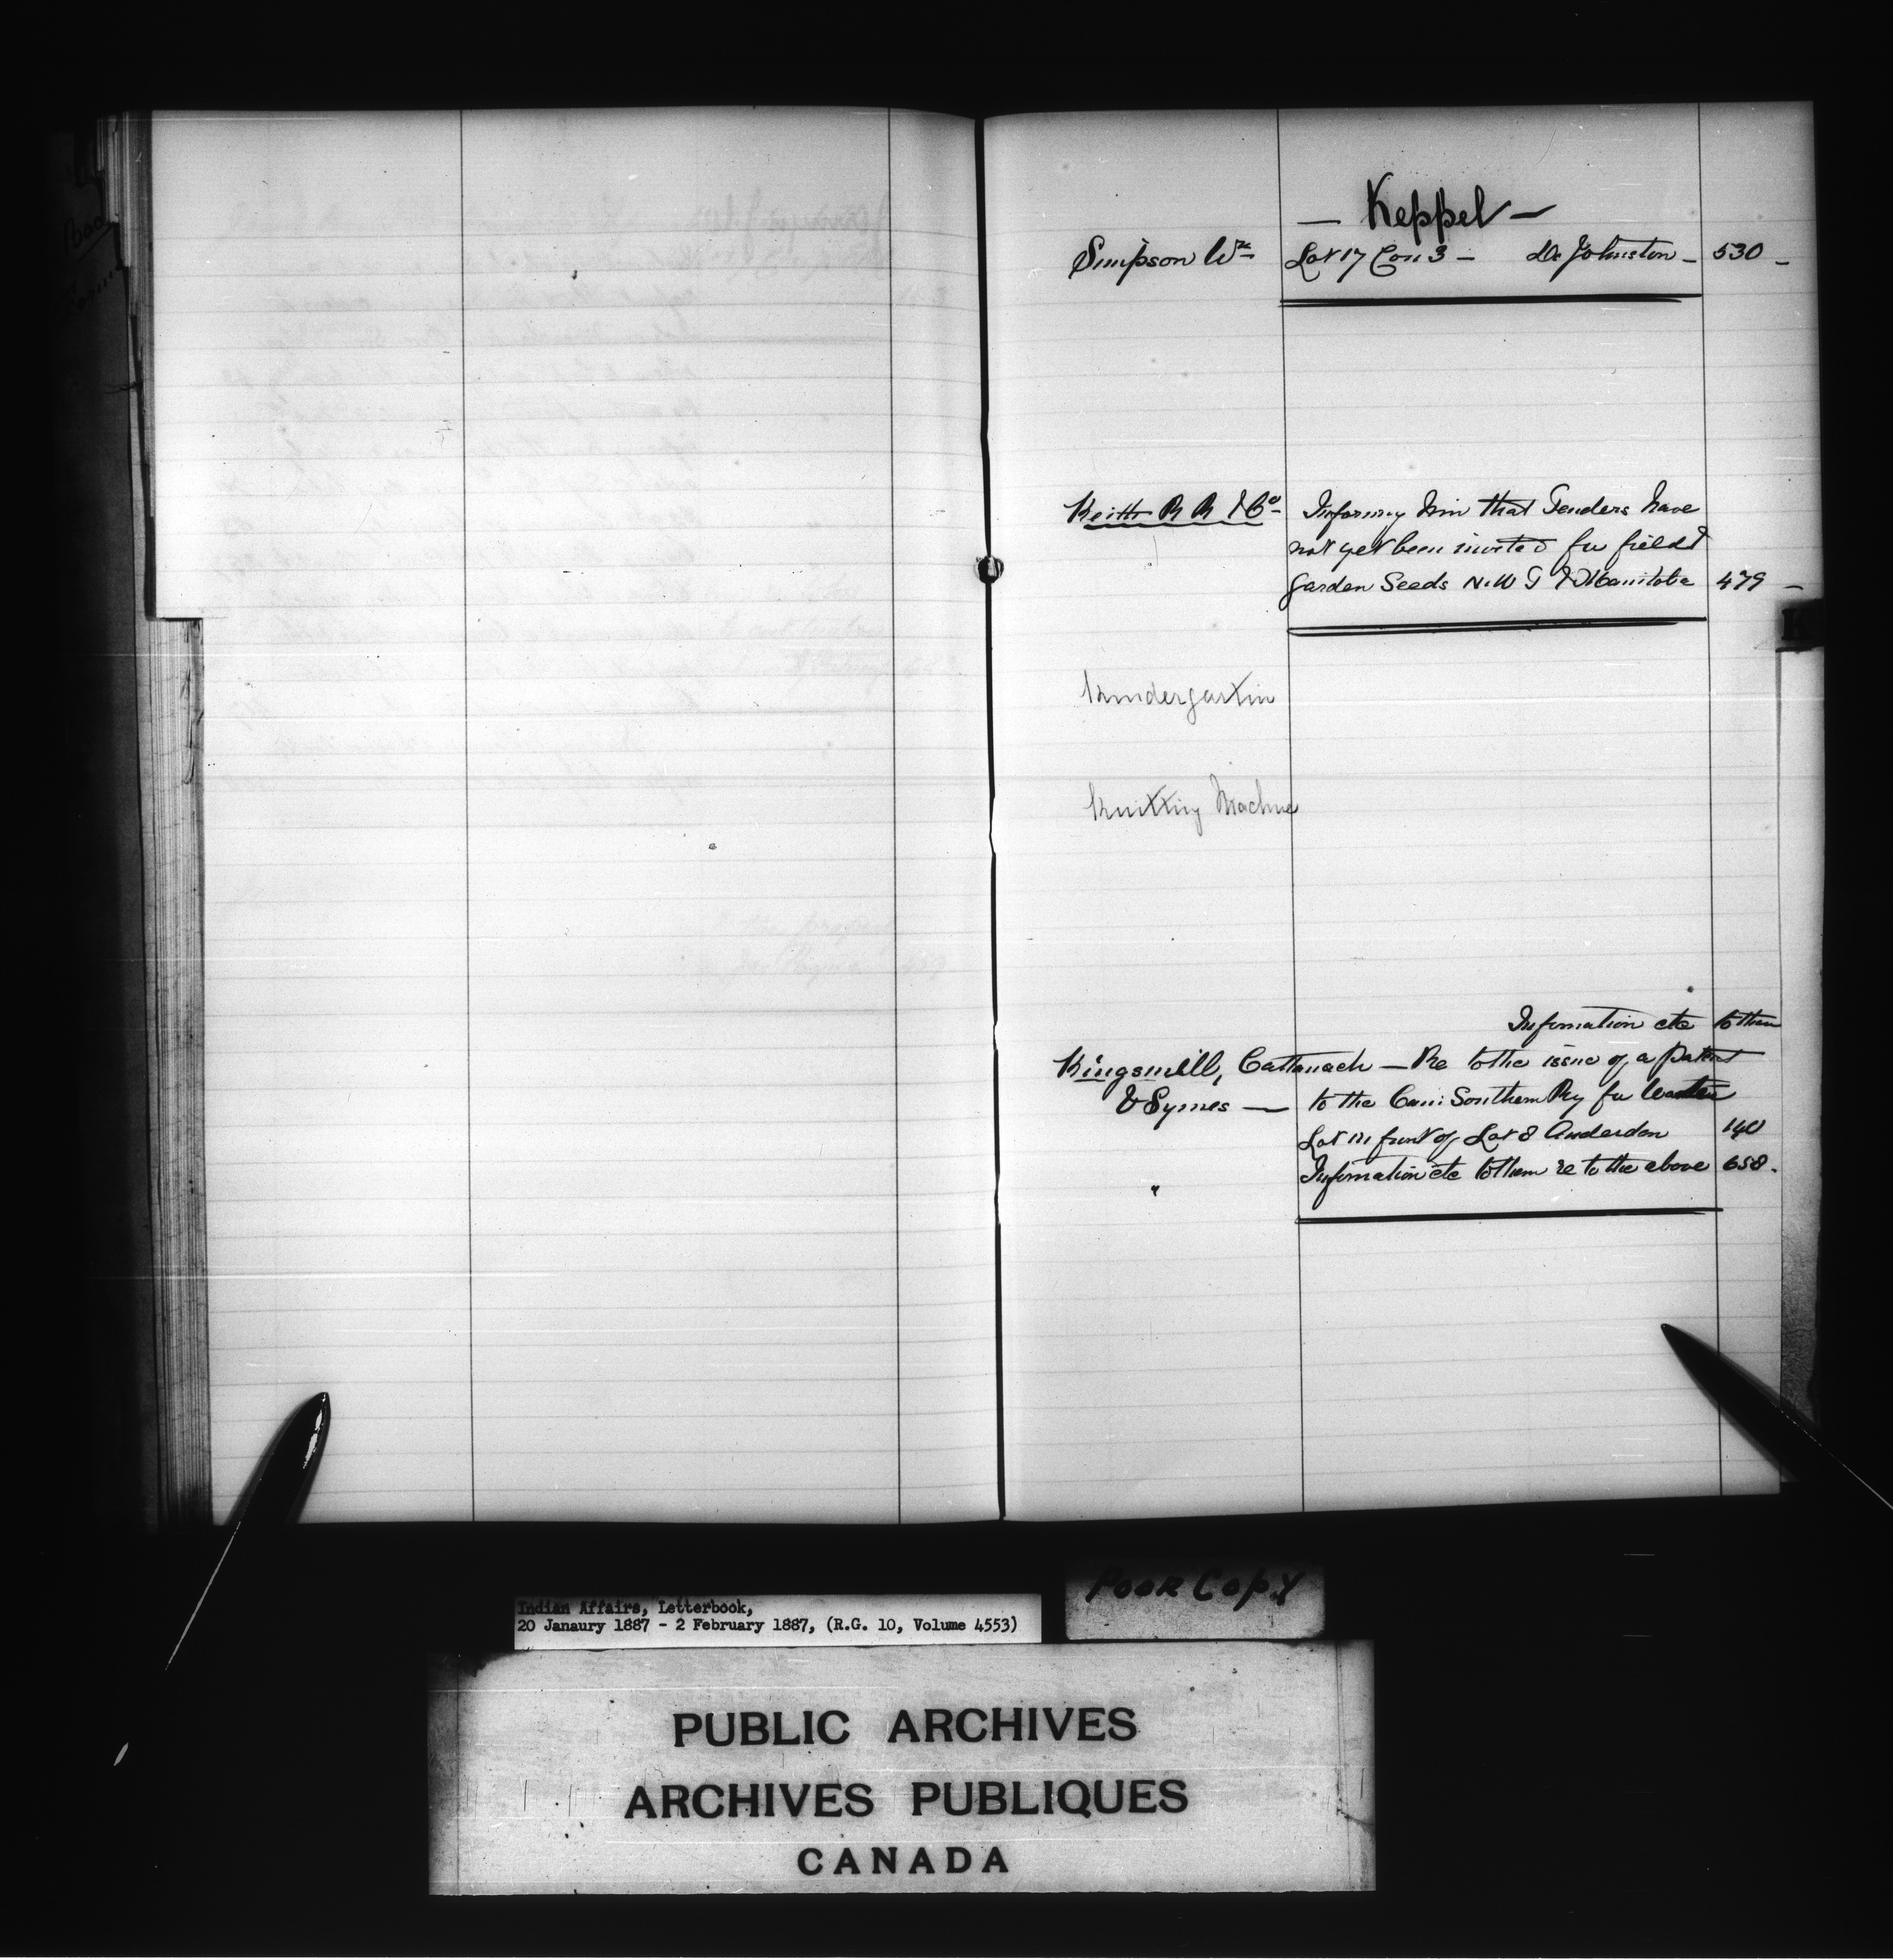 — Keppel —
Simpson Wm Lot 17 Con 3 – Dr Johnston – 530 –
Keith R R & Co Informing him that Tenders have
not yet been invited for field &
Garden Seeds N.W T & Manitoba 479 –
K
Kindergartin
Knitting Machine
Information etc to them
Kingsmill, Cattanach — Re to the issue of a patent
& Symes — to the Can: Southern Ry for Water
Lot in front of Lot 8 Anderdon 140
" Information etc to them re to the above 658.
Poor Copy
Indian Affairs, Letterbook,
20 Janaury 1887 - 2 February 1887, (R.G. 10, Volume 4553)
PUBLIC ARCHIVES
ARCHIVES PUBLIQUES
CANADA